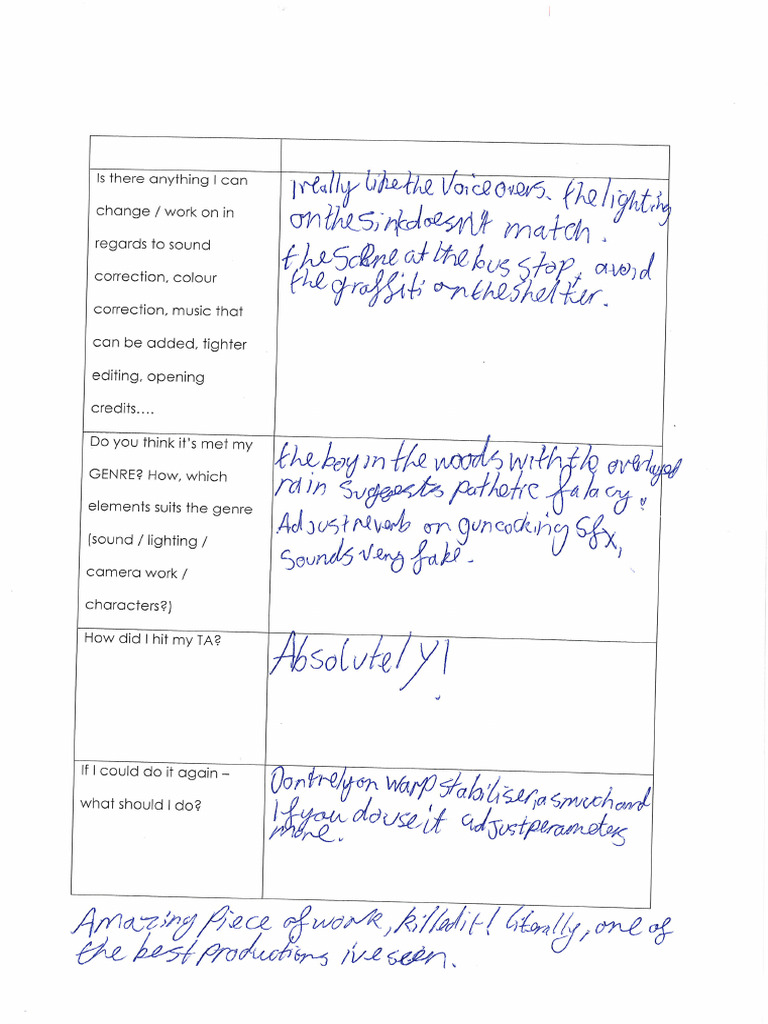 Is there anything I can
change / work on in
regards to sound
correction, colour
correction, music that
can be added, tighter
editing, opening
credits....
I really like the Voice overs. the lighting
on the sink doesn't match.
the Scene at the bus stop, avoid
the graffiti on the shelter.
Do you think it's met my
GENRE? How, which
elements suits the genre
(sound / lighting /
camera work /
characters?)
the boy in the woods with the overlayed
rain suggests pathetic falacy.
Adjust reverb on gun cocking Sfx,
Sounds very fake.
How did I hit my TA?
Absolutely!
If I could do it again –
what should I do?
Dont rely on warp stabiliser, as much and
If you do use it adjust perameters
more.
Amazing Piece of work, killed it! literally, one of
the best productions i've seen.